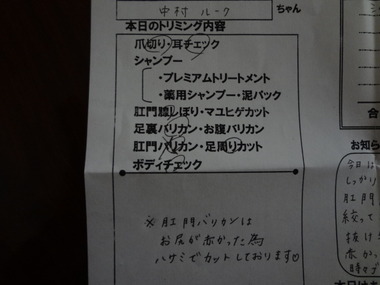 中村 ルーク ちゃん
本日のトリミング内容
爪切り・耳チェック
シャンプー
・プレミアムトリートメント
・薬用シャンプー・泥パック
肛門腺しぼり・マユヒゲカット
足裏バリカン・お腹バリカン
肛門バリカン・足周りカット
ボディチェック
※ 肛門バリカンは
お尻が赤かった為
ハサミでカットしております
合
お知ら
今日は
しっかり
肛門
絞って
抜け
赤か
時々
本日は